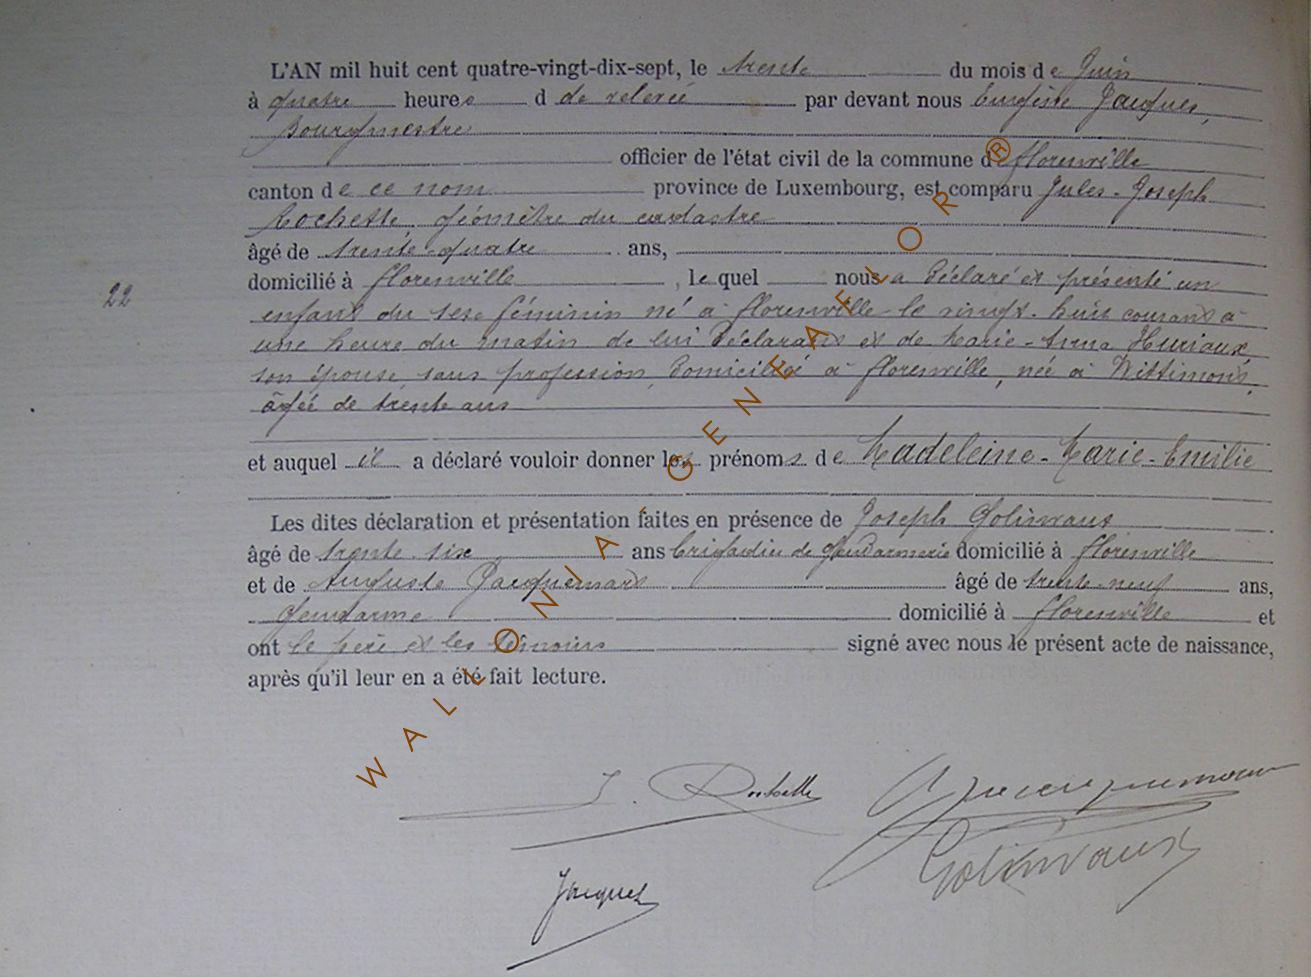 L'AN mil huit cent quatre-vingt-dix-sept, le trente du mois de Juin
à quatre heures d de relevée par devant nous Eugène Jacques,
Bourgmestre
officier de l'état civil de la commune de Florenville
canton de ce nom province de Luxembourg, est comparu Jules-Joseph
Rochette, géomètre du cadastre
âgé de trente-quatre ans,
domicilié à Florenville, lequel nous a déclaré et présenté un
22
enfant du sexe féminin né à Florenville le vingt-huit courant à
une heure du matin de lui déclarant et de Marie-Anna Huriaux,
son épouse, sans profession, domiciliée à Florenville, née à Wittimont,
âgée de trente ans
et auquel il a déclaré vouloir donner les prénoms de Madeleine-Marie-Emilie
Les dites déclaration et présentation faites en présence de Joseph Golinvaux
âgé de trente-six ans brigadier de gendarmerie domicilié à Florenville
et de Auguste Jacquemard âgé de trente-neuf ans,
gendarme domicilié à Florenville et
ont le père et les témoins signé avec nous le présent acte de naissance,
après qu'il leur en a été fait lecture.
J. Rochette
Golinvaux
Jacques
WALLONIA-GENEALOR®